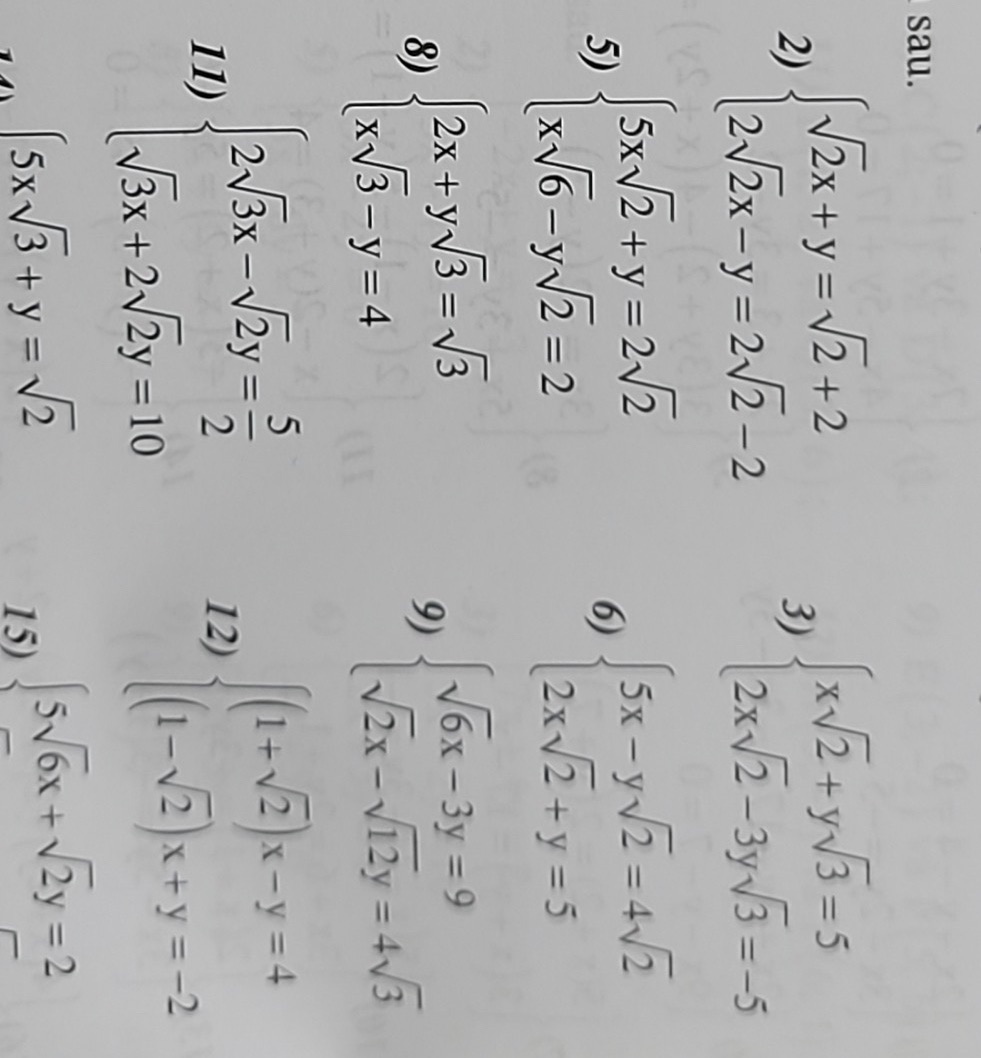 sau.
2) {√2x + y = √2 + 2
2√2x − y = 2√2 − 2
3) {x√2 + y√3 = 5
2x√2 − 3y√3 = −5
5) {5x√2 + y = 2√2
x√6 − y√2 = 2
6) {5x − y√2 = 4√2
2x√2 + y = 5
8) {2x + y√3 = √3
x√3 − y = 4
9) {√6x − 3y = 9
√2x − √12y = 4√3
11) {2√3x − √2y = 5/2
√3x + 2√2y = 10
12) {(1+√2)x − y = 4
(1−√2)x + y = −2
14) {5x√3 + y = √2
15) {5√6x + √2y = 2